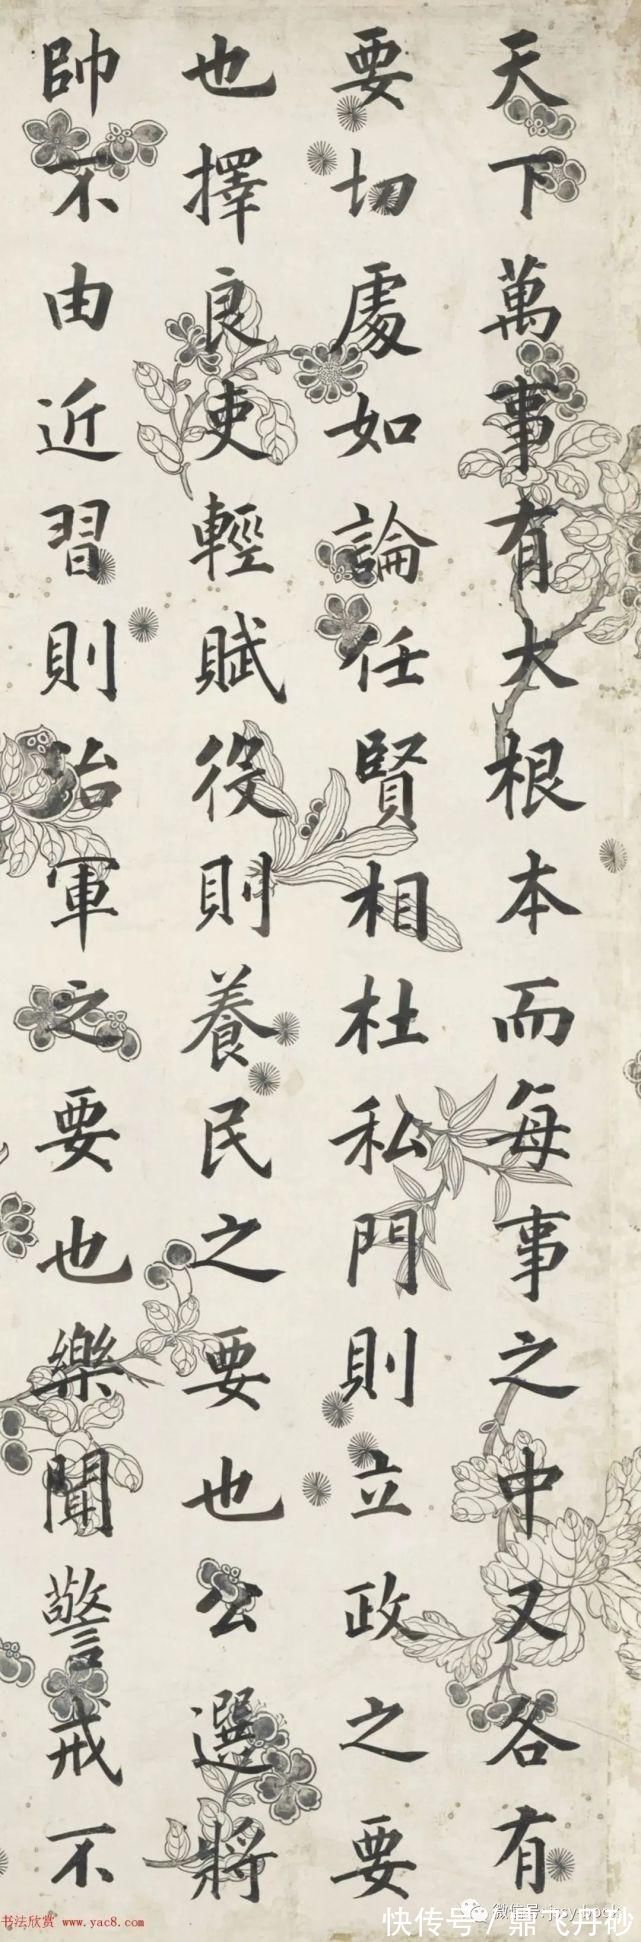 天下萬事有大根本而每事之中又各有
要切處如論任賢相杜私門則立政之要
也擇良吏輕賦役則養民之要也公選將
帥不由近習則治軍之要也樂聞警戒不
书法欣赏 www.yac8.com
微信号:
快传号 / 鼎飞丹砂